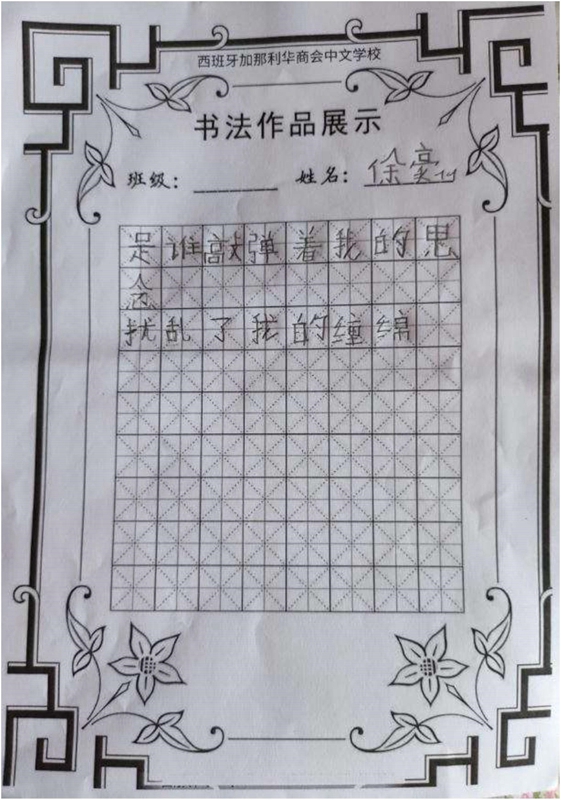 西班牙加那利华商会中文学校
书法作品展示
班级： 姓名：徐
是谁敲弹着我的思
念
扰乱了我的缠绵